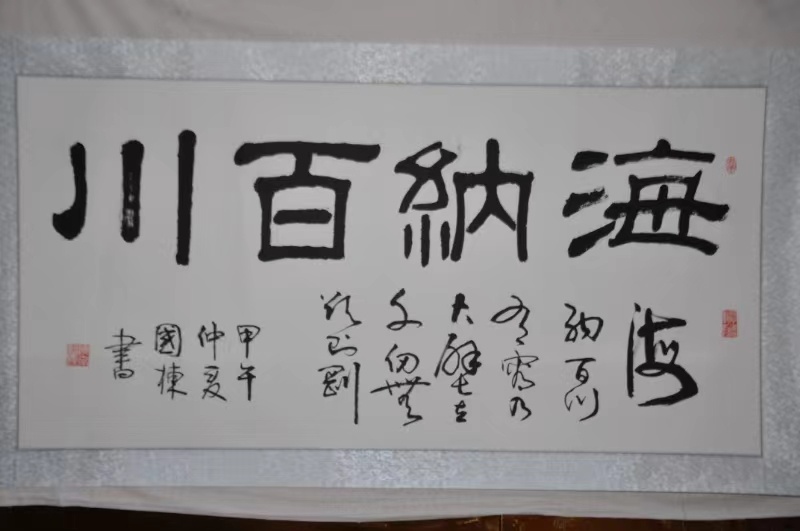 海納百川
海
納百川
有容乃
大壁立
千仞無
欲則剛
甲午
仲夏
國棟
書